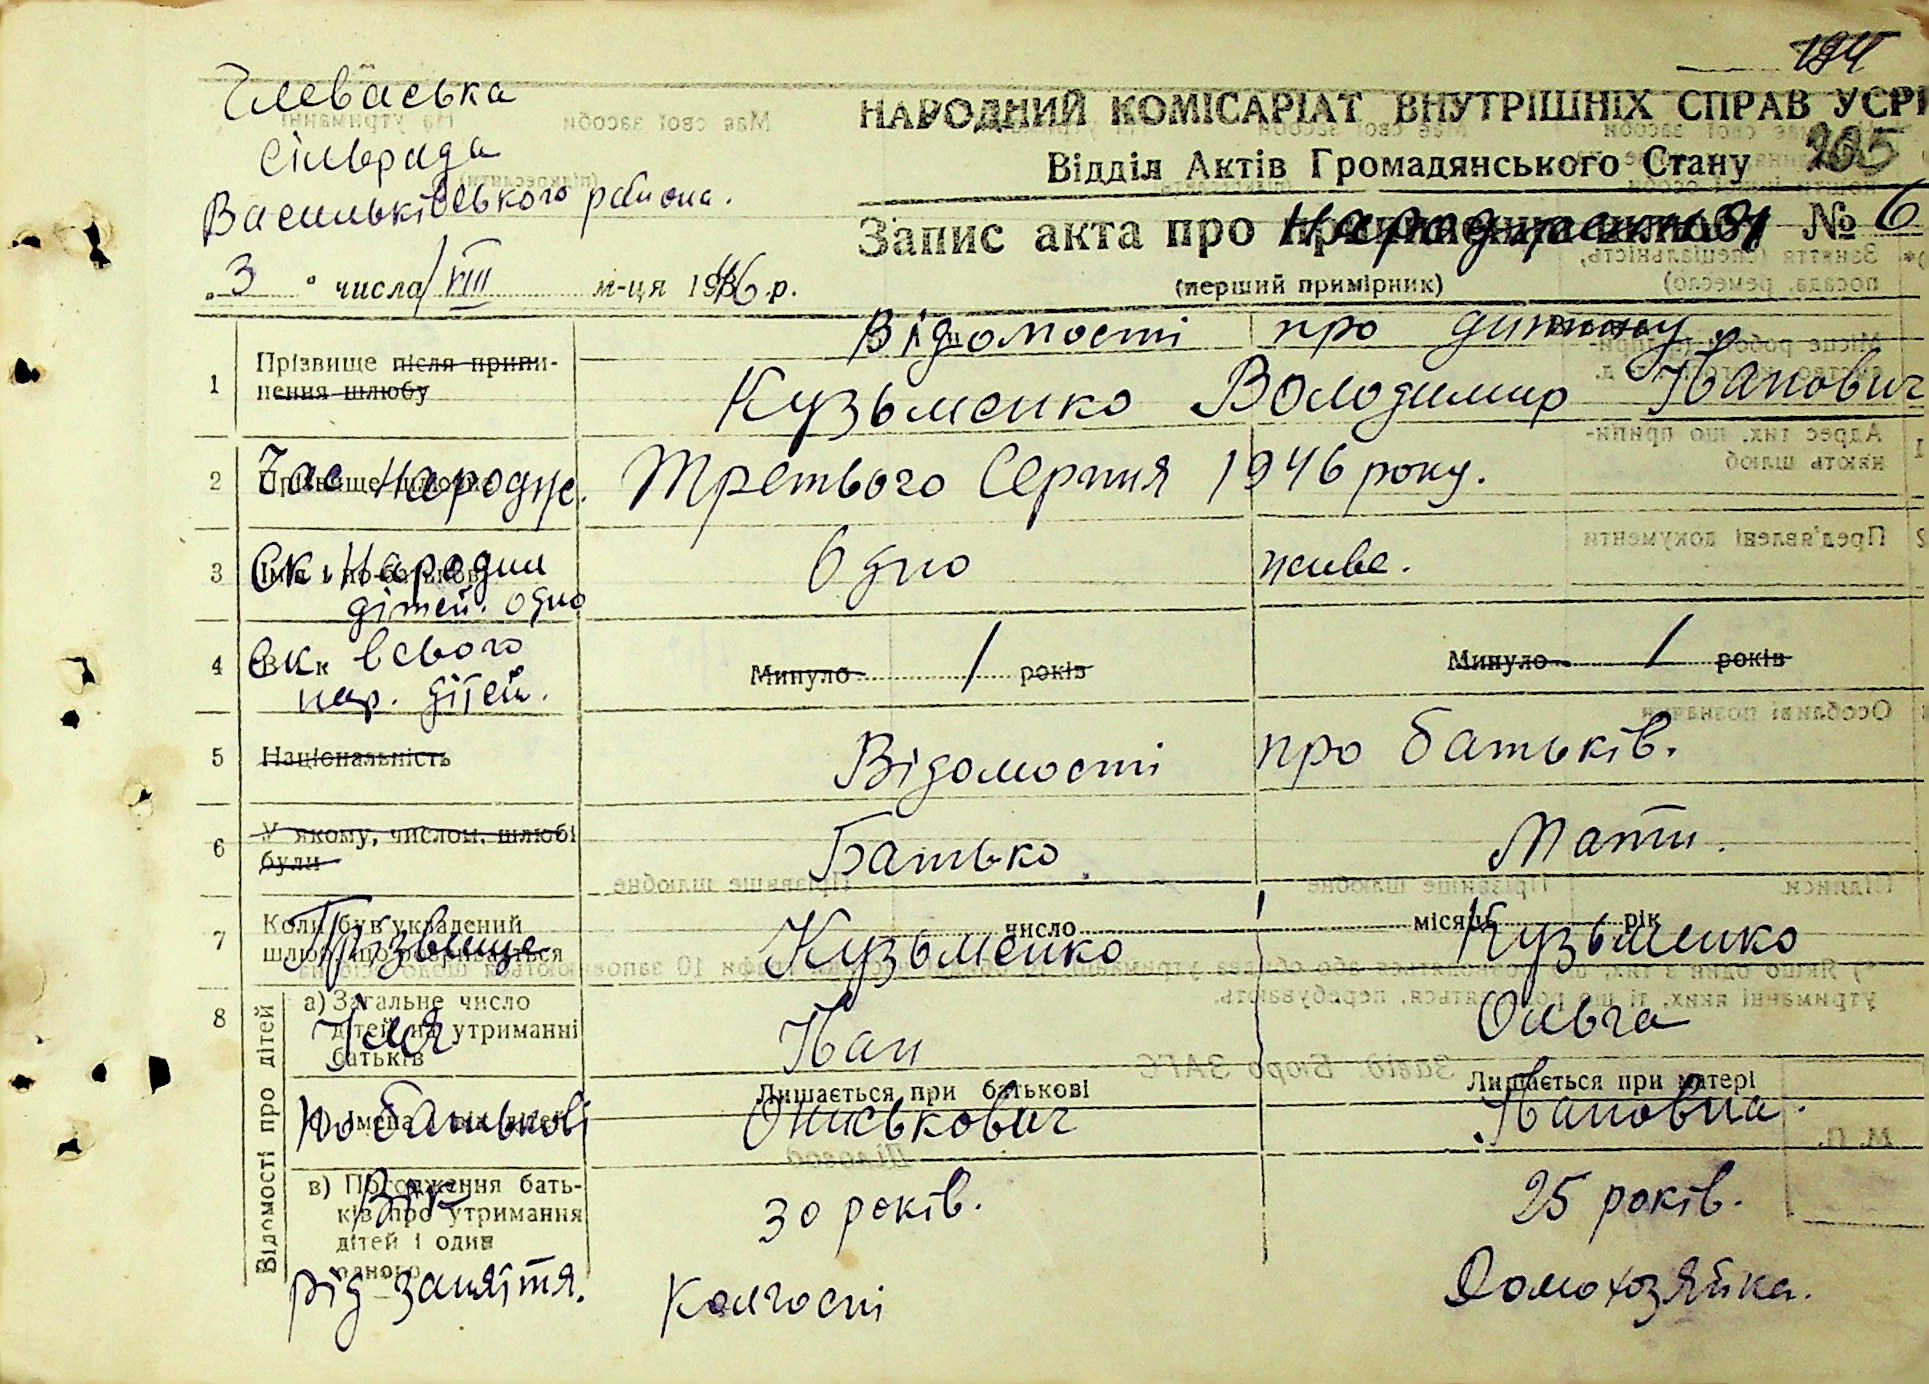 194
Глеваська
сільрада
Васильківського района.
НАРОДНИЙ КОМІСАРІАТ ВНУТРІШНІХ СПРАВ УСРР
Відділ Актів Громадянського Стану 205
Запис акта про народження № 6
(перший примірник)
"3" числа VIII м-ця 1946 р.
Відомості про дитину.
1 Прізвище після припинення шлюбу
Кузьменко Володимир Іванович
2 Час народж. Третього Серпня 1946 року.
3 Ск. Народил Одно живе.
дітей. одно
4 Ск. всього Минуло 1 років Минуло 1 років
нар. дітей.
5 Національність Відомості про батьків.
6 У якому, числом, шлюбі були Батько. Мати.
7 Коли був укладений число місяць рік
Прізвище Кузьменко Кузьменко
8 Відомості про дітей
а) Загальне число
дітей на утриманні
батьків
Імя Іван Ольга
Лишається при батькові Лишається при матері
По батькові Ониськович Івановна.
в) Погодження бать-
ків про утримання
дітей і один
одного
Вік 30 років. 25 років.
Рід заняття. Колгоспі Домохозяйка.